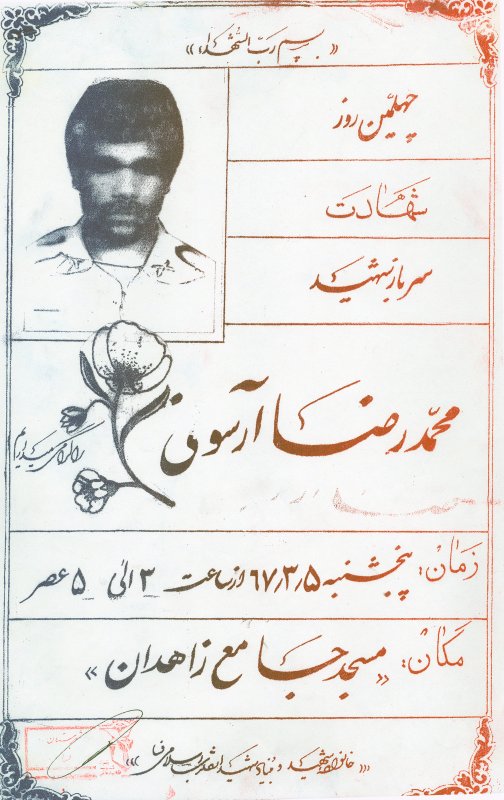 «بسم رب الشهداء»
چهلمین روز
شهادت
سرباز شهید
محمدرضا آرسون
را گرامی میداریم
زمان: پنجشنبه ۶۷٫۳٫۵ از ساعت ۳ الی ۵ عصر
مکان: «مسجد جامع زاهدان»
«خانواده شهید و بنیاد شهید انقلاب اسلامی فسا»